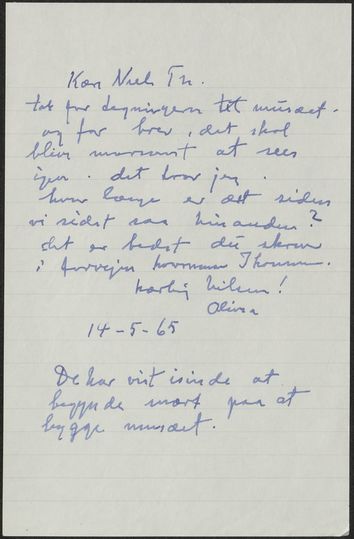 Kære Niels Th.
tak for tegningerne til musæet.
og for brev, det skal
blive morsomt at sees
igen. det tror jeg.
hvor længe er det siden
vi sidst saa hinanden?
det er bedst du skriver
i forvejen hvornaar I kommer.
kærlig hilsen!
Oliver
14-5-65
De har vist isinde at
begynde snart paa at
bygge musæet.